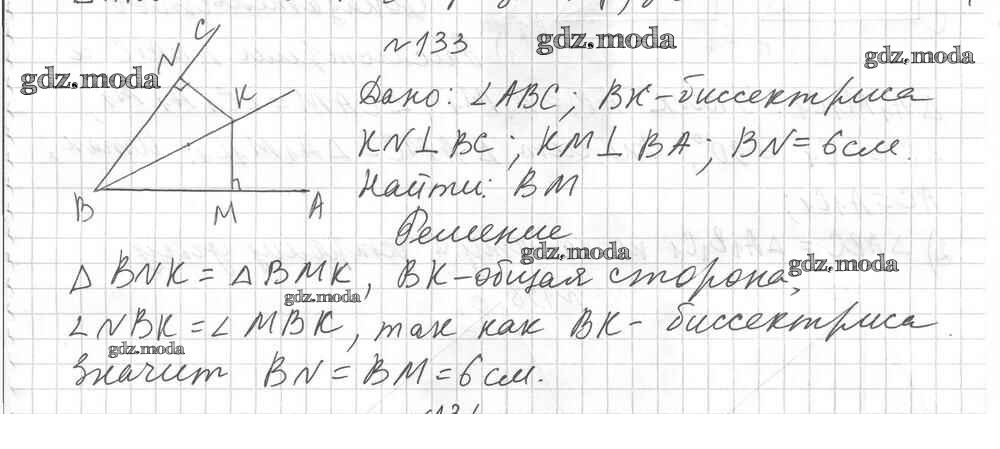 №133
gdz.moda
gdz.moda
gdz.moda
C
N
K
B
M
A
Дано: ∠ABC; BK-биссектриса
KN⊥BC; KM⊥BA; BN=6см.
Найти: BM
Решение
gdz.moda
gdz.moda
△BNK=△BMK, BK-общая сторона,
gdz.moda
∠NBK=∠MBK, так как BK-биссектриса.
gdz.moda
Значит BN=BM=6см.